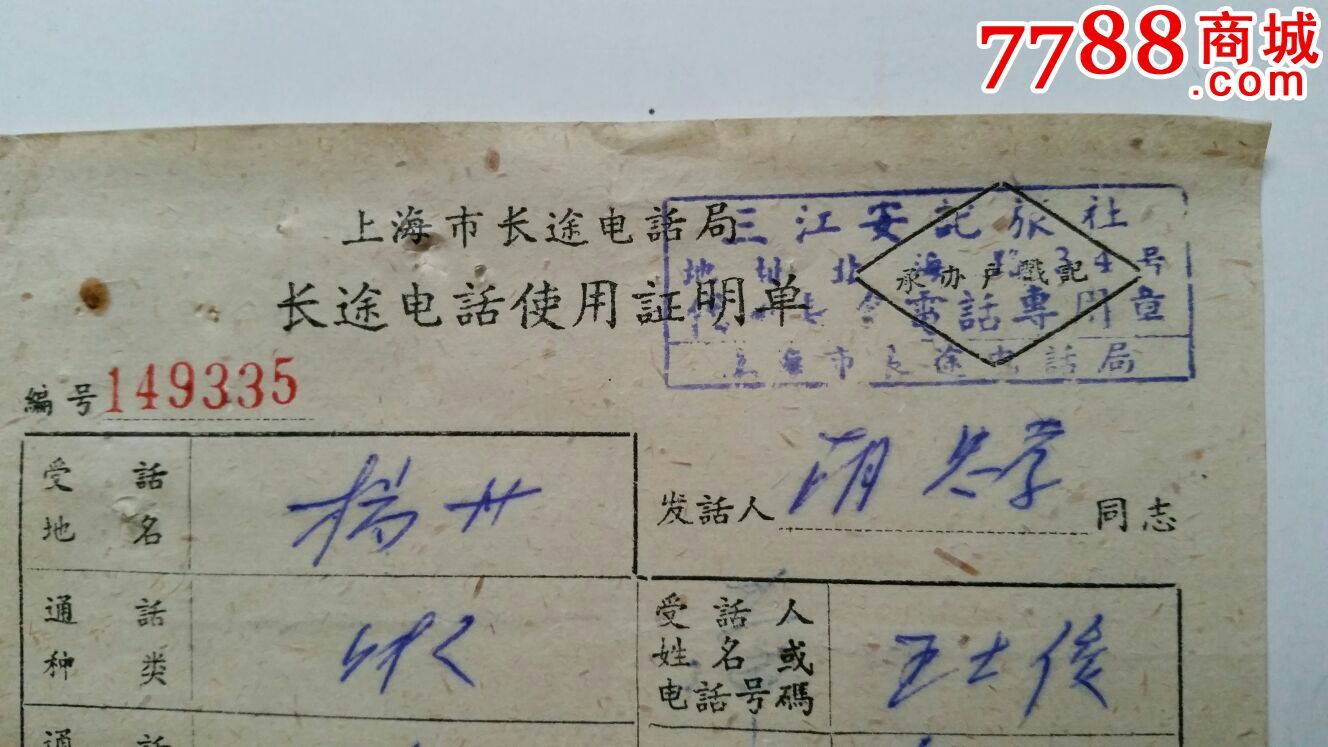 7788商城
.com
上海市长途电話局
长途电話使用証明单
三江安記旅社
地址北海路34号
電話專用章
上海市长途电話局
承办户戳記
编号149335
受話地名
杨州
发話人 同志
通話种类
叫人
受話人姓名或电話号碼
王士俊
通話